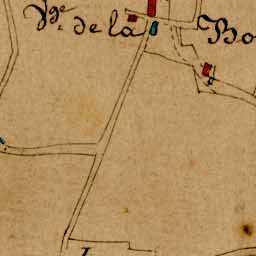 Vge. de la Bo